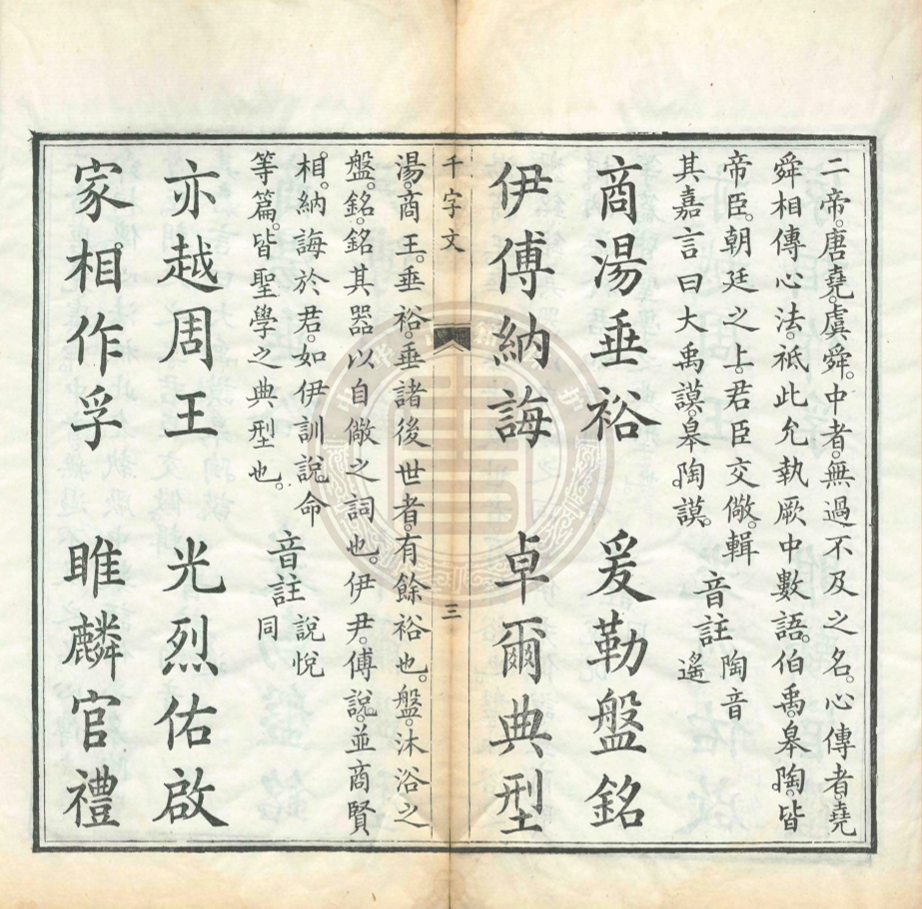 二帝。唐堯。虞舜。中者。無過不及之名。心傳者。堯
舜相傳心法。祗此允執厥中數語。伯禹。皋陶。皆
帝臣。朝廷之上。君臣交儆。輯
其嘉言曰大禹謨。皋陶謨。
音註陶音
遙
商湯垂裕 爰勒盤銘
伊傅納誨 卓爾典型
千字文
三
湯。商王。垂裕。垂諸後世者。有餘裕也。盤。沐浴之
盤。銘。銘其器以自儆之詞也。伊尹。傅說。並商賢
相。納誨於君。如伊訓說命
等篇。皆聖學之典型也。
音註說悅
同
亦越周王 光烈佑啟
家相作孚 雎麟官禮